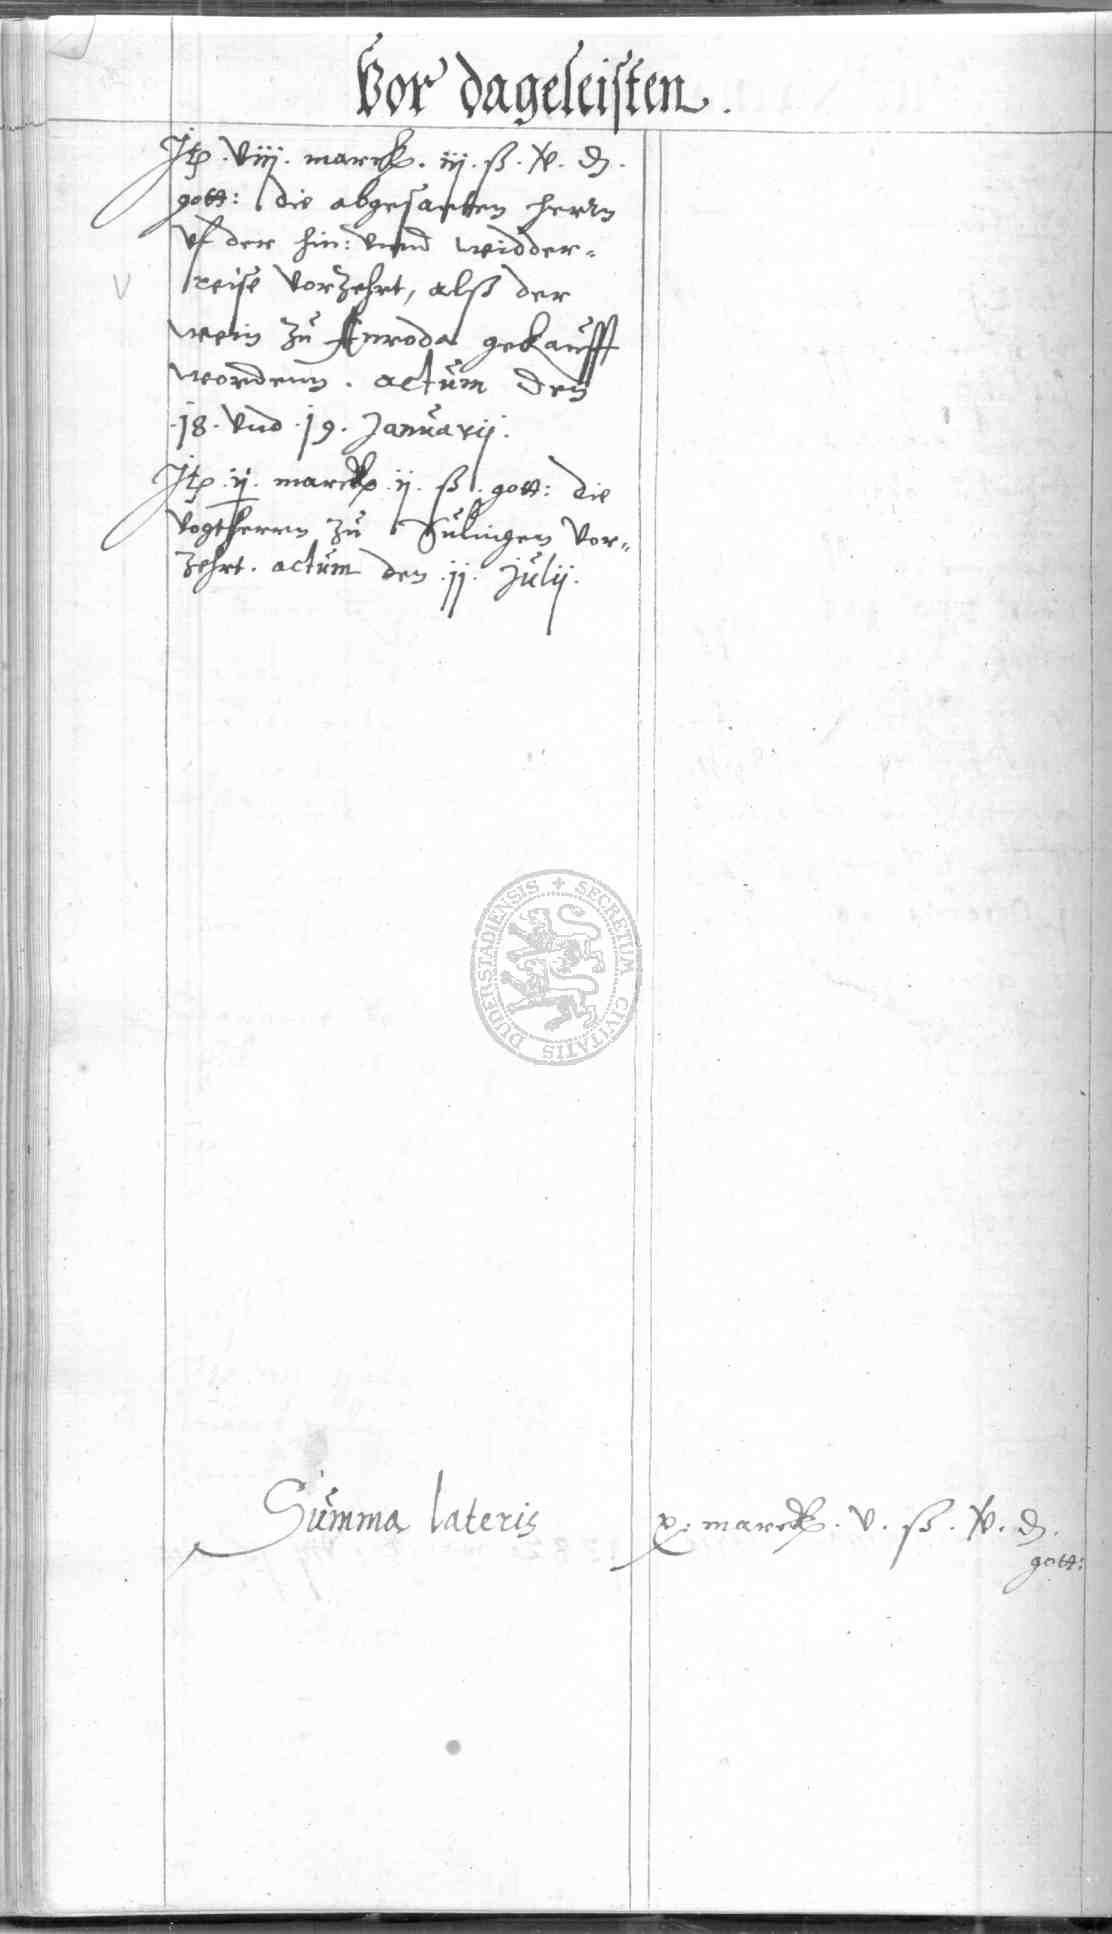 Vor dageleisten.
Itp. viij. marck. iij. ß. xv. ₰.
gott: die abgesantten herrn
vf der hin: vnnd widder=
reise vorzehrt, alß der
wein zu Anroda gekaufft
wordenn. actum den
.18. vnd .19. Januarij.
Itp. ij. marck ij. ß. gott: die
vogtherrn zu Sulingen vor=
zehrt. actum den .11. julij.
DUDERSTADIENSIS + SECRETUM CIVITATIS
Summa lateris x. marck. v. ß. xv. ₰.
gott: